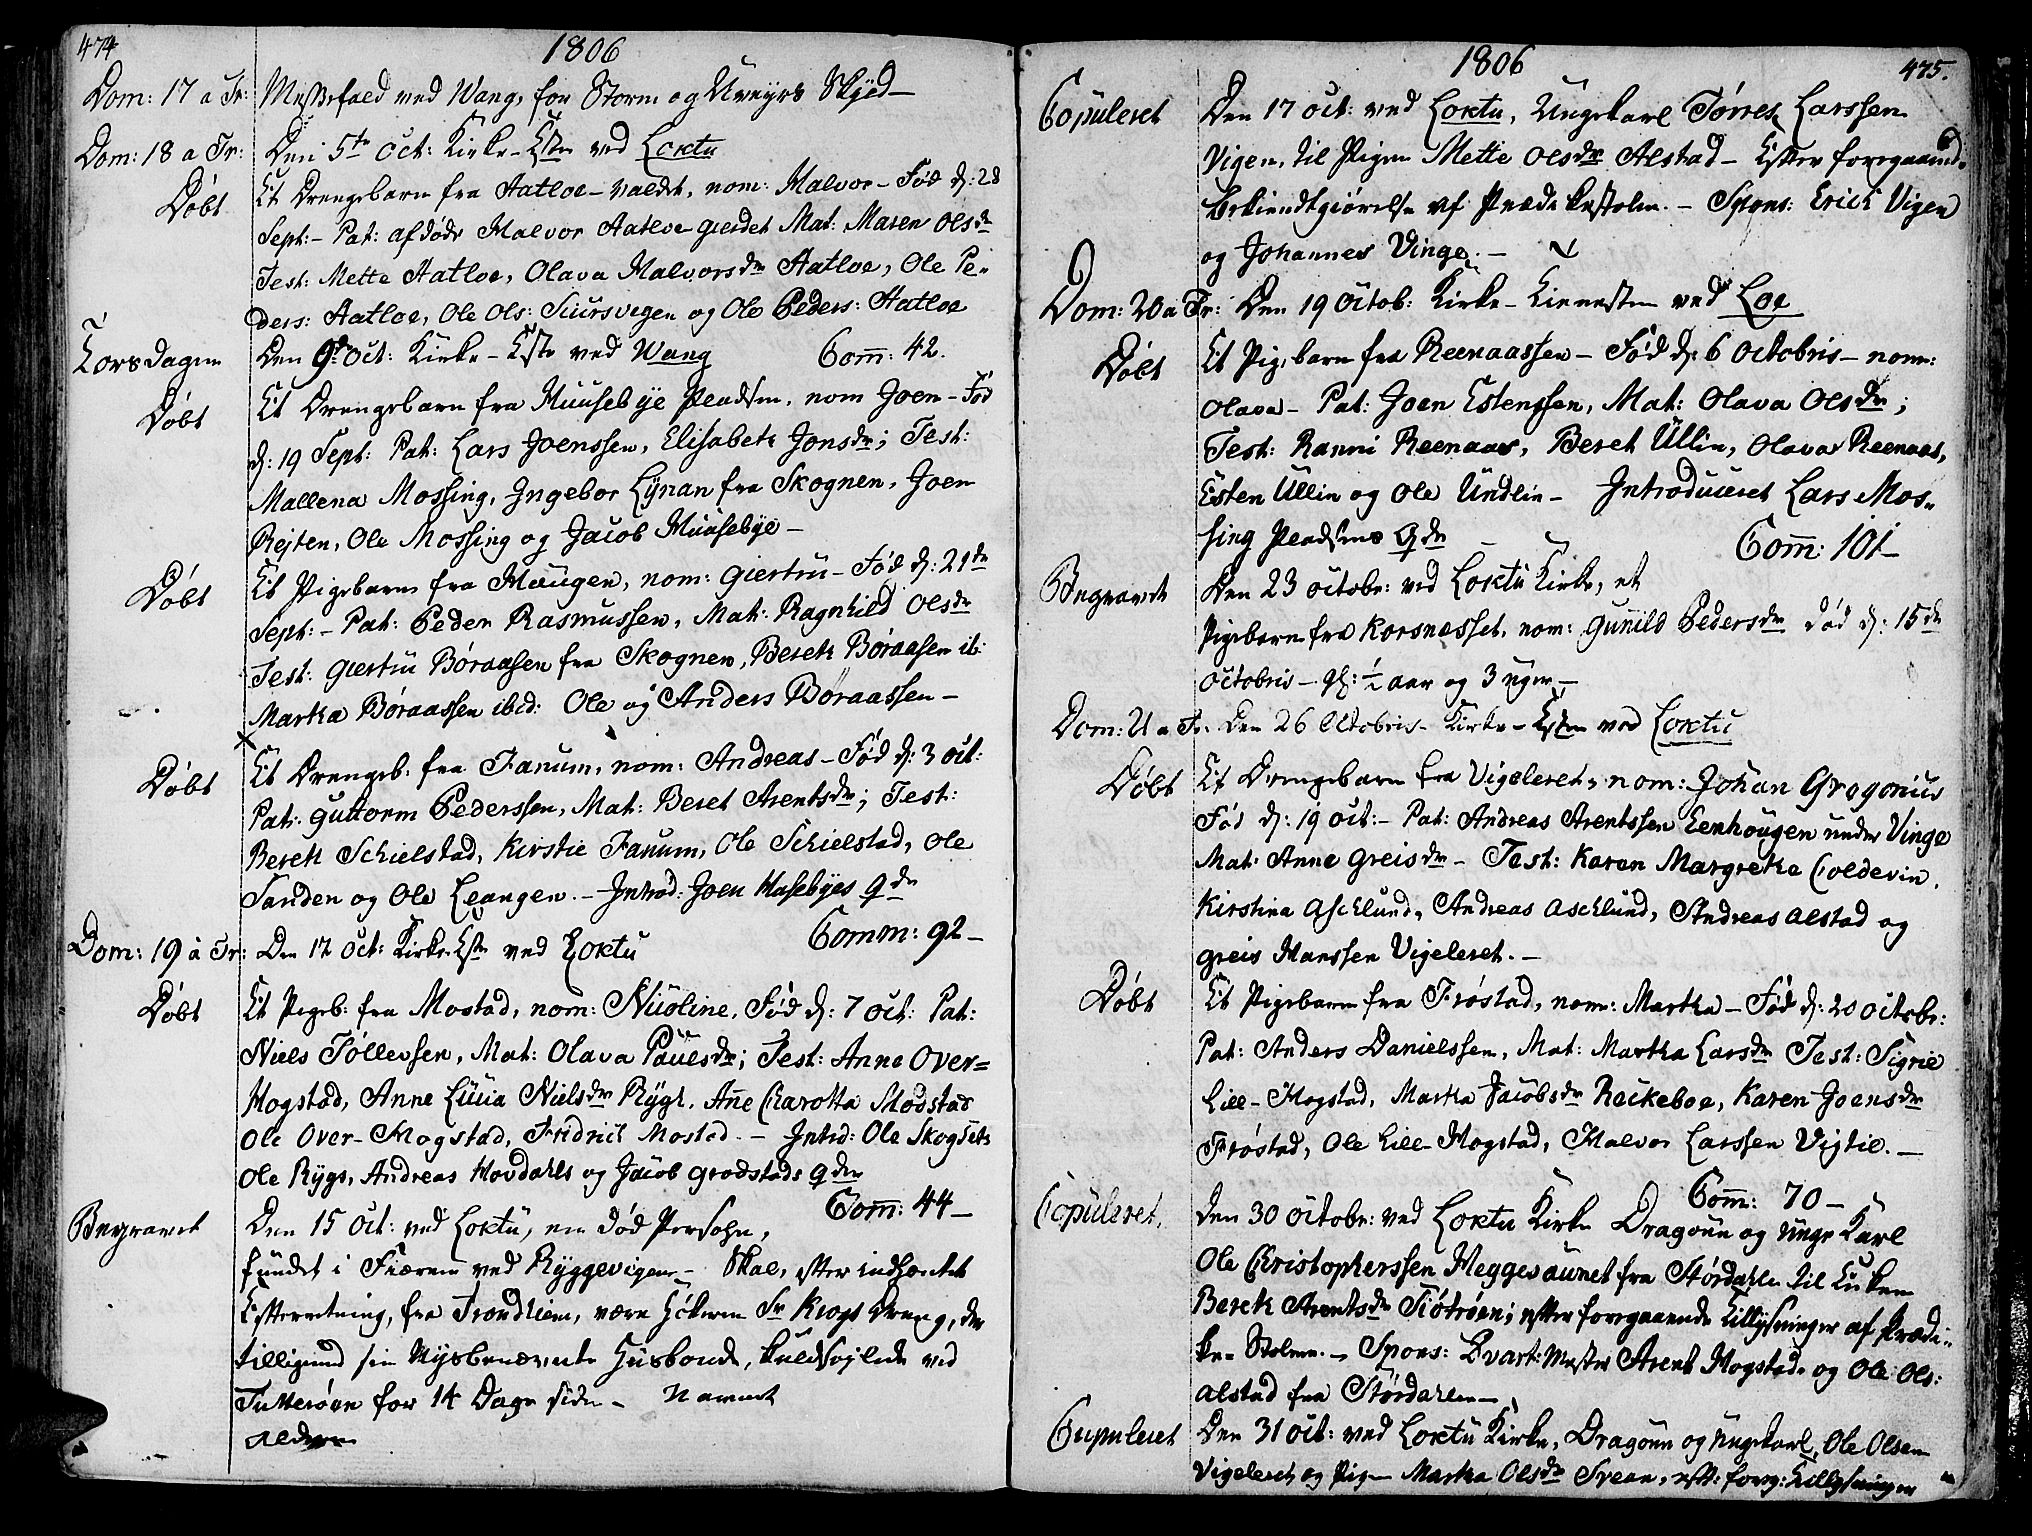 474
1806
Dom: 17 a Tr: Messefald ved Wang, for Storm og Uveyrs Skyld—
Dom: 18 a Tr: Den 5te Oct: Kirke-Tienesten ved Loktu
Døbt Et Drengebarn fra Aatloe-valdet, nom: Halvor – Fød d: 28
Sept: – Pat: afdøde Halvor Aatloe gierdet Mat: Maren Olsdr
Test: Mette Hatloe, Olava Halvorsdr Hatloe, Ole Pe-
ders: Hatloe, Ole Ols: Siursvegen og Ole Peders: Hatloe
Torsdagen Den 9de Oct: Kirke-Tieneste ved Wang Com: 42.
Døbt Et Drengebarn fra Huusebye Pladsen, nom Joen – Fød
d: 19 Sept: Pat: Lars Joenssen, Elisabeth Jonsdr; Test:
Mallena Mossing, Ingebor Lynan fra Skognen, Joen
Rejten, Ole Mossing og Jacob Huusebye —
Døbt Et Pigebarn fra Haugen, nom: Giertru – Fød d: 21de
Sept: – Pat: Peder Rasmussen, Mat: Ragnhild Olsdr
Test: Giertru Børaasen fra Skognen, Bereth Børaasen ib:
Martha Børaassen ibid: Ole og Anders Børaassen –
Døbt Et Drengeb: fra Fanum, nom: Andreas – Fød d: 3 Oct:
Pat: Guttorm Pederssen, Mat: Beret Arentsdr; Test:
Bereth Schielstad, Kirstie Fanum, Ole Schielstad, Ole
Sanden og Ole Leangen. – Introd: Joen Husebyes Qde
Comm: 92 –
Dom: 19 a Tr: Den 12 Oct: Kirke-Tienesten ved Loktu
Døbt Et Pigeb: fra Mostad, nom: Nicoline, Fød d: 7 Oct: Pat:
Niels Tøllevsen, Mat: Olava Paulsdr; Test: Anne Over=
Hogstad, Anne Lucia Nielsdr Rygh, Añe Charotta Mostad
Ole Over-Hogstad, Fridrich Mostad. – Introd: Ole Skogset
Ole Rygs, Andreas Hovdahls og Jacob Grodstads Qder
Com: 44 –
Begravet Den 15 Oct: ved Loktu, en død Persohn,
fundet i Fiæren ved Ryggevigen – Skal, efter indhentet
Efterretning, fra Trondhiem, være Høkeren Sr Krogs Dreng, der
tilligemed sin Nysbenævnte Husbonde, kuldsejlede ved
Tutterøen for 14 Dage siden – Navnet
Alderen
1806
475.
Copuleret Den 17 Oct: ved Loktu, Ungekarl Tørres Larssen
Vigen, til Pigen Mette Olsdr Alstad – Efter foregaaend
Bekiendtgiørelse af Prædikestolen. – Spons: Erich Vigen
og Johannes Vinge. –
Dom: 20 a Tr: Den 19 Octob: Kirke-Tienesten ved Loe
Døbt Et Pigebarn fra Reenaassen – Fød d: 6 Octobris – nom:
Olava – Pat: Joen Estenssen, Mat: Olava Olsdr;
Test: Ranni Reenaas, Beret Ullin, Olava Reenaas,
Esten Ullin og Ole Undlin – Introduceret Lars Mos-
sing Pladsens Qde
Com: 101 –
Begravet Den 23 Octobr: ved Loktu Kirke, et
Pigebarn fra Korsnesset, nom: Gunild Pedersdr død d: 15de
Octobris – gl: ½ aar og 3 uger –
Dom: 21 a Tr: Den 26 Octobris – Kirke-Tienesten ved Loktu
Døbt Et Drengebarn fra Vigeleret, nom: Johan Gregorius
Fød d: 19 Oct: – Pat: Andreas Arentssen Eenhougen under Vinge
Mat: Anne Greisdr – Test: Karen Margrethe Coldevin,
Kirstina Aschlund, Andreas Aschlund, Andreas Alstad og
Greis Hanssen Vigeleret. –
Døbt Et Pigebarn fra Frøstad, nom: Martha – Fød d: 20 Octobr:
Pat: Anders Danielssen, Mat: Martha Larsdr Test: Sigrie
Lill-Hogstad, Martha Jacobsdr Reikeboe, Karen Joensdr
Frøstad, Ole Lill-Hogstad, Halvor Larssen Vigtil. –
Com: 70 –
Copuleret. Den 30 Octobr: ved Loktu Kirke Dragoun og Unge Karl
Ole Christopherssen Heggesaunet fra Størdahlen til Enken
Bereth Arentsdr Fiøtrøen; efter foregaaende Tillysninger af Prædi-
ke-Stolen. – Spons: Qvart:Mester Arent Hogstad og Ole Ols:
Alstad fra Størdahlen –
Cupuleret Den 31 Oct: ved Loktu Kirke, Dragoun og Ungekarl, Ole Olsen
Vigeleret og Pigen Martha Olsdr Svean, eft: foreg: Tillysninger